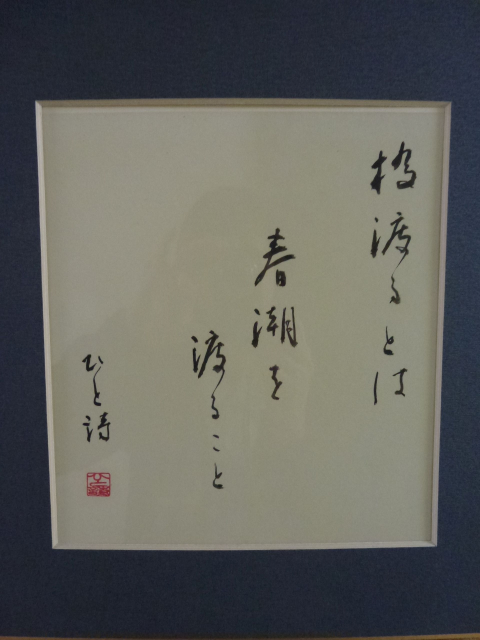 橋渡るとは
春潮を
渡ること
ひと詩